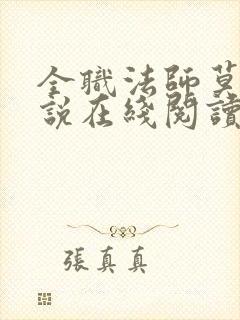 全職法師莫
說在綫閱讀
張真真